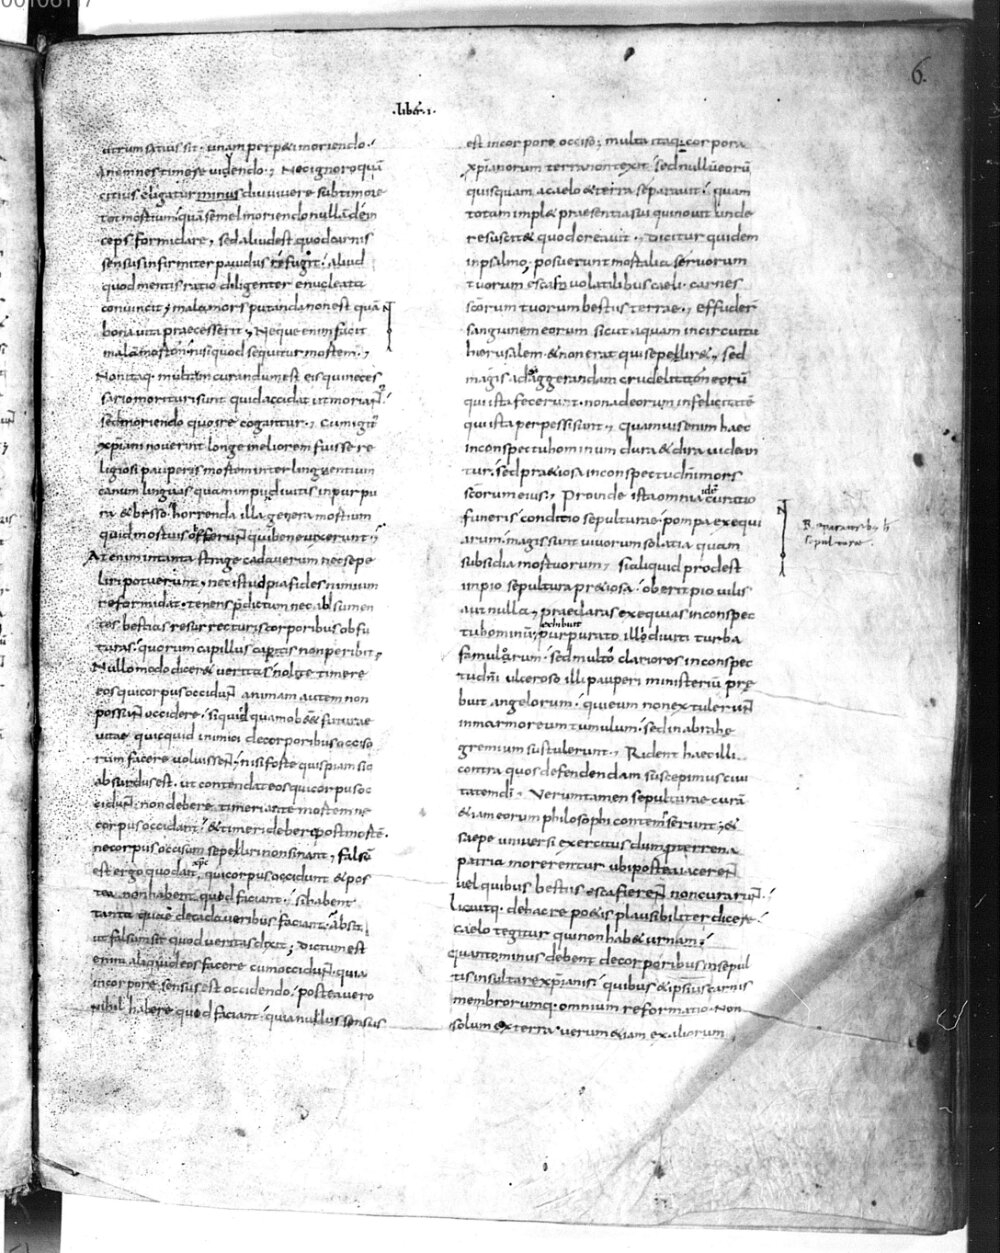 6.
·liber·i·
utrum satius sit· unam perpeti moriendo·
An omnes timere vivendo; Nec ignoro quā
citius eligatur minus diu vivere sub timore
tot mortium· quā semel moriendo nullā dein
ceps formidare, sed aliud est quod carnis
sensus infirmiter pavidus refugit· aliud
quod mentis ratio diligenter enucleata
convincit; mala mors putanda non est quā
bona vita praecesserit; Neque enim facit
malā mortem· nisi quod sequitur mortem;
Non itaq· multum curandum est eis qui neces
sario morituri sunt quid accidat ut moriant̄·
sed moriendo quo ire cogantur; Cum igit̄
xp̄iani noverint longe meliorem fuisse re
ligiosi pauperis mortem inter linguentium
canum linguas quam impii divitis in purpu
ra & bysso· horrenda illa genera mortium
quid mortuis offuerunt̄ qui bene vixerunt;
At enim in tanta strage cadaverum nec sepe
liri potuerunt, nec istud pia fides nimium
reformidat· tenens p̄dictum nec absumen
tes bestias resurrecturis corporibus obfu
turas· quorum capillus capitis non peribit;
Nullo modo diceret veritas· nolite timere
eos qui corpus occidunt̄ animam autem non
possunt̄ occidere· si quid quam obesset futurae
vitae quicquid inimici de corporibus occiso
rum facere voluissent̄; nisi forte quispiam sic
absurdus est· ut contendat eos qui corpus oc
cidunt̄· non debere timeri ante mortem ne
corpus occidant· & timeri debere post mortē·
ne corpus occisum sepelliri non sinant; falsū
est ergo quod ait xp̄c̄, qui corpus occidunt & pos
tea non habent quod faciant· si habent
tanta quae de cadaveribus faciant· Absit,
ut falsum sit quod veritas dixit; Dictum est
enim aliquid eos facere cum occidunt̄· quia
in corpore sensus est occidendo· postea vero
nihil habere quod faciant· quia nullus sensus
est in corpore occiso; multa itaq· corpora
xp̄ianorum terra non texit· sed nullū eorū
quisquam a caelo & terra separavit· quam
totam implet praesentia sui qui novit unde
resuscitet quod creavit·; Dicitur quidem
in psalmo· posuerunt mortalia servorum
tuorum escas volatilibus caeli· carnes
scōrum tuorum bestiis terrae·; effuder̄
sanguinem eorum sicut aquam in circuitu
hierusalem· & non erat qui sepelliret; sed
magis ad exaggerandam crudelitatem eorū
qui ista fecerunt· non ad eorum infelicitatē
qui ista perpessi sunt; quamvis enim haec
in conspectu hominum dura & dira videan
tur· sed praetiosa in conspectu dn̄i mors
scōrum eius; Proinde ista omnia id ē curatio
funeris· conditio sepulturae· pompa exequi
arum· magis sunt vivorum solatia· quam
subsidia mortuorum; si aliquid prodest
impio sepultura praetiosa· oberit pio vilis
aut nulla; praeclaras exequias in conspec
tu hominū exhibuit purpurato illi diviti turba
famulorum· sed multo clariores in conspec
tu dn̄i ulceroso illi pauperi ministeriū prę
buit angelorum· qui eum non extulerunt̄
in marmoreum tumulum· sed in abrahę
gremium sustulerunt·; Rident haec illi
contra quos defendendam suscepimus civi
tatem dī· Verumtamen sepulturae curā
etiam eorum philosophi contemserunt; &
saepe universi exercitus dum pro terrena
patria morerentur ubi postea iacerent̄
vel quibus bestiis esca fierent̄ non curarunt̄·
Licuitq· de hac re poetis plausibiliter dicere·
caelo tegitur qui non habet urnam·
quanto minus debent de corporibus insepul
tis insultare xp̄ianis· quibus & ipsius carnis
membrorumq· omnium reformatio· Non
solum ex terra· verum etiam ex aliorum